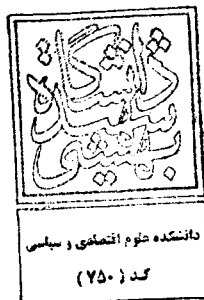 دانشگاه
شهید
بهشتی
دانشکده علوم اقتصادی و سیاسی
کد ( ۷۵۰ )